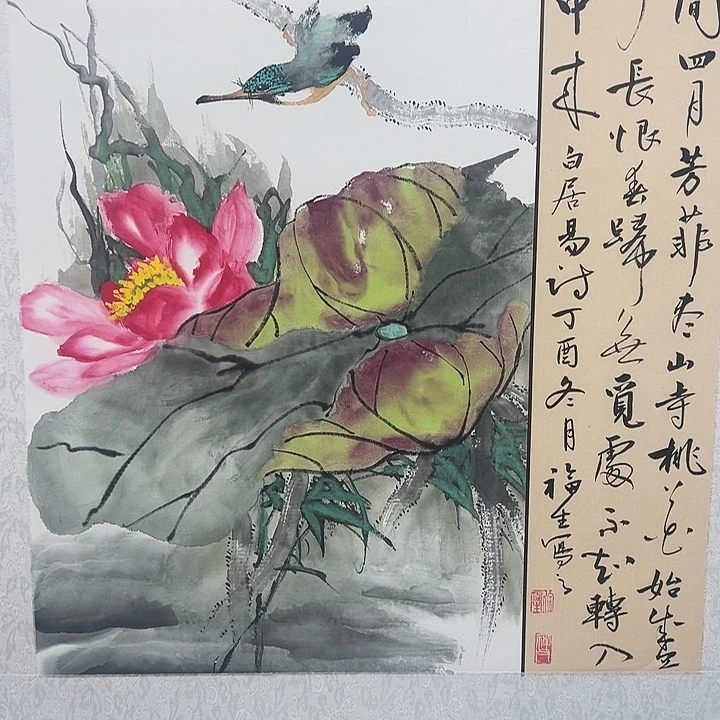 間四月芳菲盡山寺桃花始盛
長恨春歸無覓處不知轉入
中來白居易詩丁酉冬月福生寫之